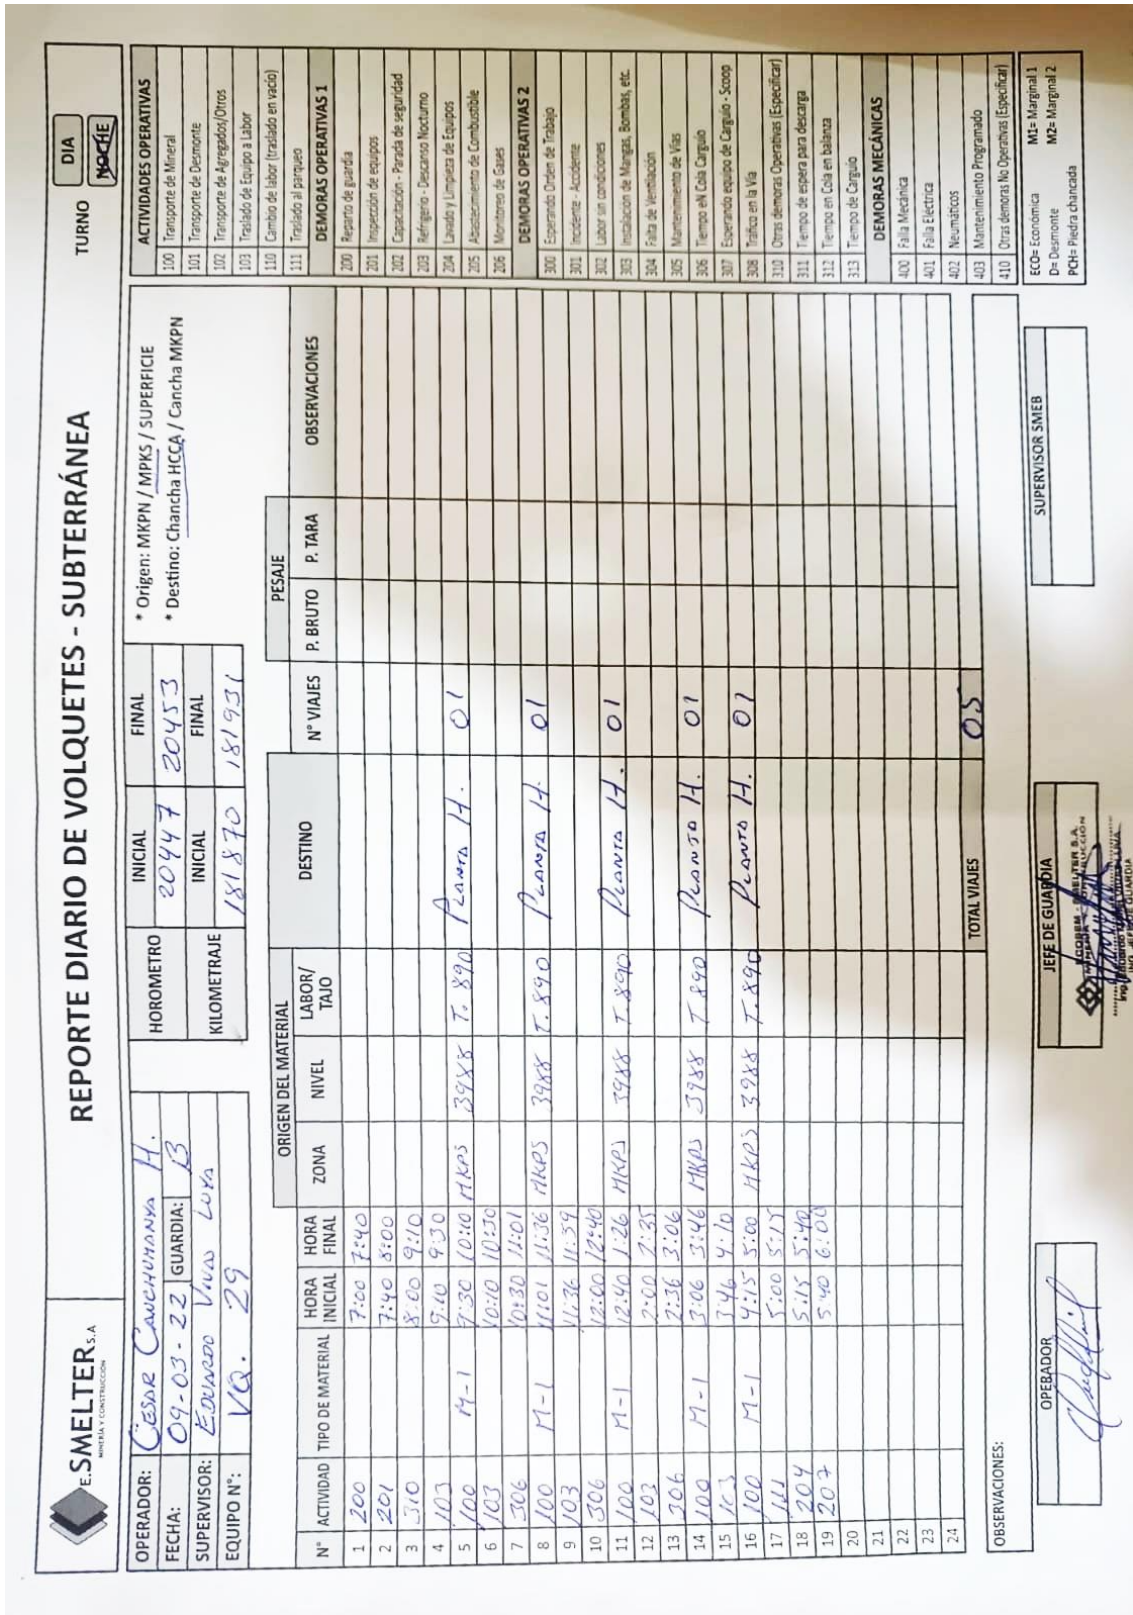 E.SMELTER S.A
MINERÍA Y CONSTRUCCIÓN
REPORTE DIARIO DE VOLQUETES - SUBTERRÁNEA
TURNO DIA
NOCHE
OPERADOR: CESAR CANCHUMANYA H.
FECHA: 09-03-22 GUARDIA: B
SUPERVISOR: EDUARDO VIVAS LUYA
EQUIPO N°: VQ. 29
HOROMETRO INICIAL FINAL
20447 20453
KILOMETRAJE INICIAL FINAL
181870 181931
* Origen: MKPN / MPKS / SUPERFICIE
* Destino: Chancha HCCA / Cancha MKPN
ORIGEN DEL MATERIAL PESAJE
N° ACTIVIDAD TIPO DE MATERIAL HORA INICIAL HORA FINAL ZONA NIVEL LABOR/ TAJO DESTINO N° VIAJES P. BRUTO P. TARA OBSERVACIONES
1 200 7:00 7:40
2 201 7:40 8:00
3 310 8:00 9:10
4 103 9:10 9:30
5 100 M-1 9:30 10:10 MKPS 3988 T. 890 PLANTA H. 01
6 103 10:10 10:30
7 306 10:30 11:01
8 100 M-1 11:01 11:36 MKPS 3988 T. 890 PLANTA H. 01
9 103 11:36 11:59
10 306 12:00 12:40
11 100 M-1 12:40 1:26 MKPS 3988 T. 890 PLANTA H. 01
12 103 2:00 2:35
13 306 2:36 3:06
14 100 M-1 3:06 3:46 MKPS 3988 T. 890 PLANTA H. 01
15 103 3:46 4:10
16 100 M-1 4:15 5:00 MKPS 3988 T. 890 PLANTA H. 01
17 111 5:00 5:15
18 204 5:15 5:40
19 207 5:40 6:00
20
21
22
23
24
TOTAL VIAJES 05
OBSERVACIONES:
ACTIVIDADES OPERATIVAS
100 Transporte de Mineral
101 Transporte de Desmonte
102 Transporte de Agregados/Otros
103 Traslado de Equipo a Labor
110 Cambio de labor (traslado en vacío)
111 Traslado al parqueo
DEMORAS OPERATIVAS 1
200 Reparto de guardia
201 Inspección de equipos
202 Capacitación - Parada de seguridad
203 Refrigerio - Descanso Nocturno
204 Lavado y Limpieza de Equipos
205 Abastecimiento de Combustible
206 Monitoreo de Gases
DEMORAS OPERATIVAS 2
300 Esperando Orden de Trabajo
301 Incidente - Accidente
302 Labor sin condiciones
303 Instalación de Mangas, Bombas, etc.
304 Falta de Ventilación
305 Mantenimiento de Vías
306 Tiempo eN Cola Carguio
307 Esperando equipo de Carguio - Scoop
308 Trafico en la Vía
310 Otras demoras Operativas (Especificar)
311 Tiempo de espera para descarga
312 Tiempo en Cola en balanza
313 Tiempo de Carguio
DEMORAS MECÁNICAS
400 Falla Mecánica
401 Falla Eléctrica
402 Neumáticos
403 Mantenimiento Programado
410 Otras demoras No Operativas (Especificar)
ECO= Económica M1= Marginal 1
D= Desmonte M2= Marginal 2
PCH= Piedra chancada
OPERADOR
JEFE DE GUARDIA
SUPERVISOR SMEB
ECOSEM - SMELTER S.A.
MINERIA Y CONSTRUCCIÓN
ING. JEFE DE GUARDIA